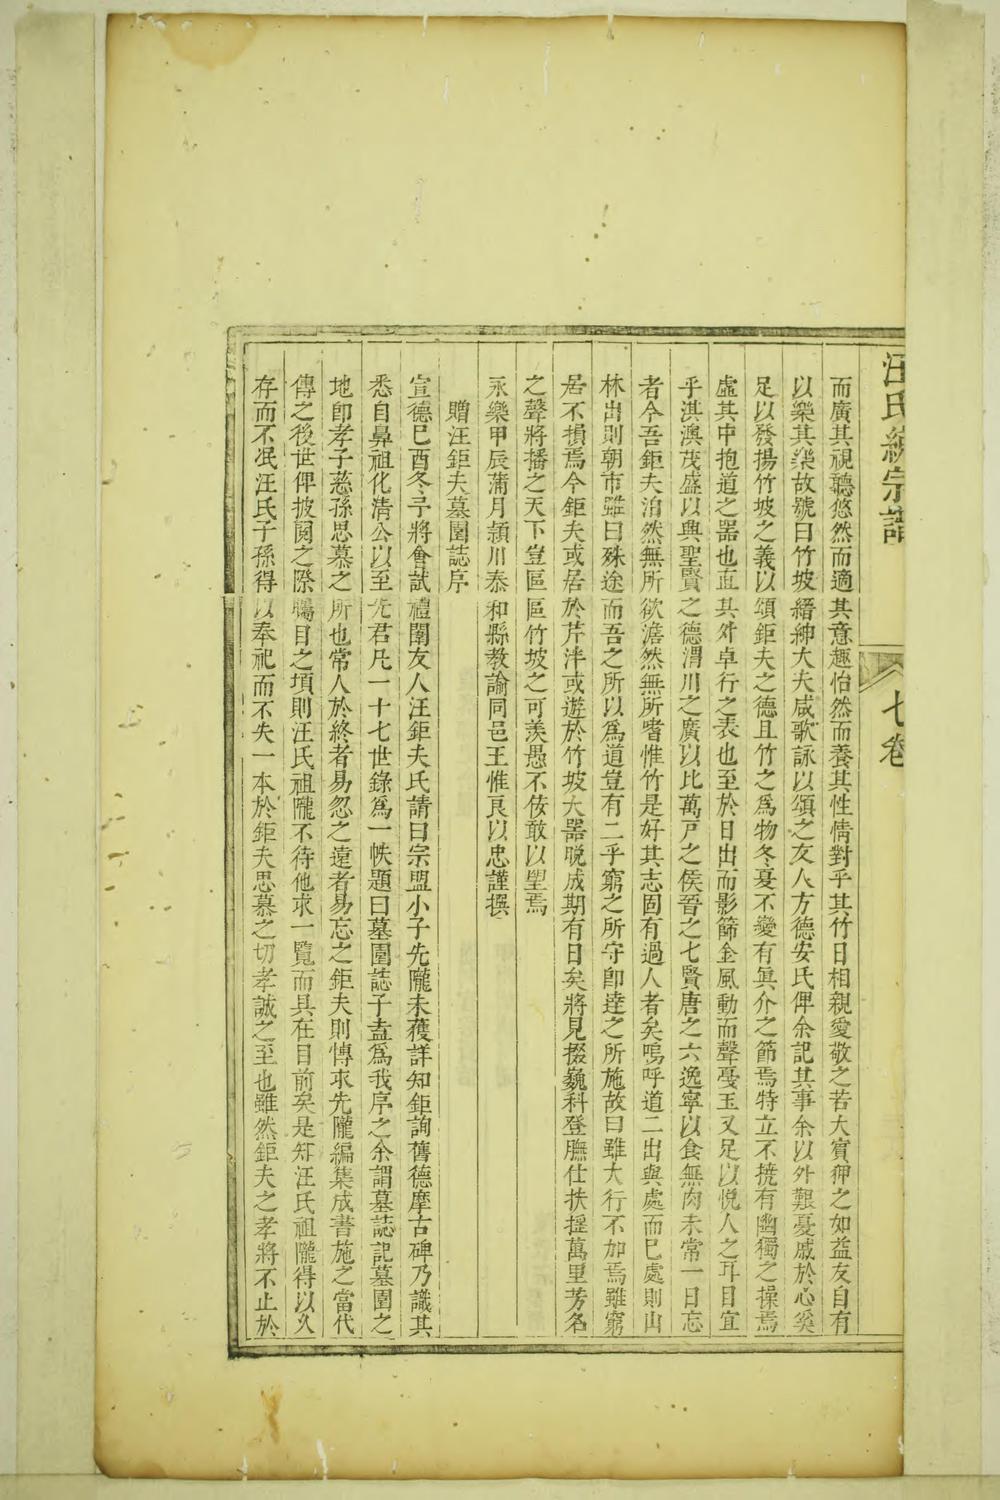 汪氏統宗譜 七卷
而廣其視聽悠然而適其意趣怡然而養其性情對乎其竹日相親愛敬之若大賓狎之如益友自有
以樂其樂故號曰竹坡縉紳大夫咸歌詠以頌之友人方德安氏俾余記其事余以外艱憂戚於心奚
足以發揚竹坡之義以頌鉅夫之德且竹之爲物冬夏不變有貞介之節焉特立不撓有幽獨之操焉
虛其中抱道之器也直其外卓行之表也至於日出而影篩金風動而聲戞玉又足以悅人之耳目宜
乎淇澳茂盛以與聖賢之德渭川之廣以比萬戸之侯晉之七賢唐之六逸寧以食無肉未常一日忘
者今吾鉅夫泊然無所欲澹然無所嗜惟竹是好其志固有過人者矣嗚呼道二出與處而已處則山
林出則朝市雖曰殊途而吾之所以爲道豈有二乎窮之所守卽達之所施故曰雖大行不加焉雖窮
居不損焉今鉅夫或居於芹泮或遊於竹坡大器晩成期有日矣將見掇巍科登膴仕扶揺萬里芳名
之聲將播之天下豈區區竹坡之可羨愚不佞敢以望焉
永樂甲辰蒲月潁川泰和縣教諭同邑王惟良以忠謹撰
贈汪鉅夫墓圖誌序
宣德己酉冬予將會試禮闈友人汪鉅夫氏請曰宗盟小子先隴未獲詳知鉅詢舊德摩古碑乃識其
悉自鼻祖化清公以至先君凡一十七世錄爲一帙題曰墓圖誌子盍爲我序之余謂墓誌記墓圖之
地卽孝子慈孫思慕之所也常人於終者易忽之遠者易忘之鉅夫則慱求先隴編集成書施之當代
傳之後世俾披閱之際矚目之頃則汪氏祖隴不待他求一覽而具在目前矣是知汪氏祖隴得以久
存而不泯汪氏子孫得以奉祀而不失一本於鉅夫思慕之切孝誠之至也雖然鉅夫之孝將不止於